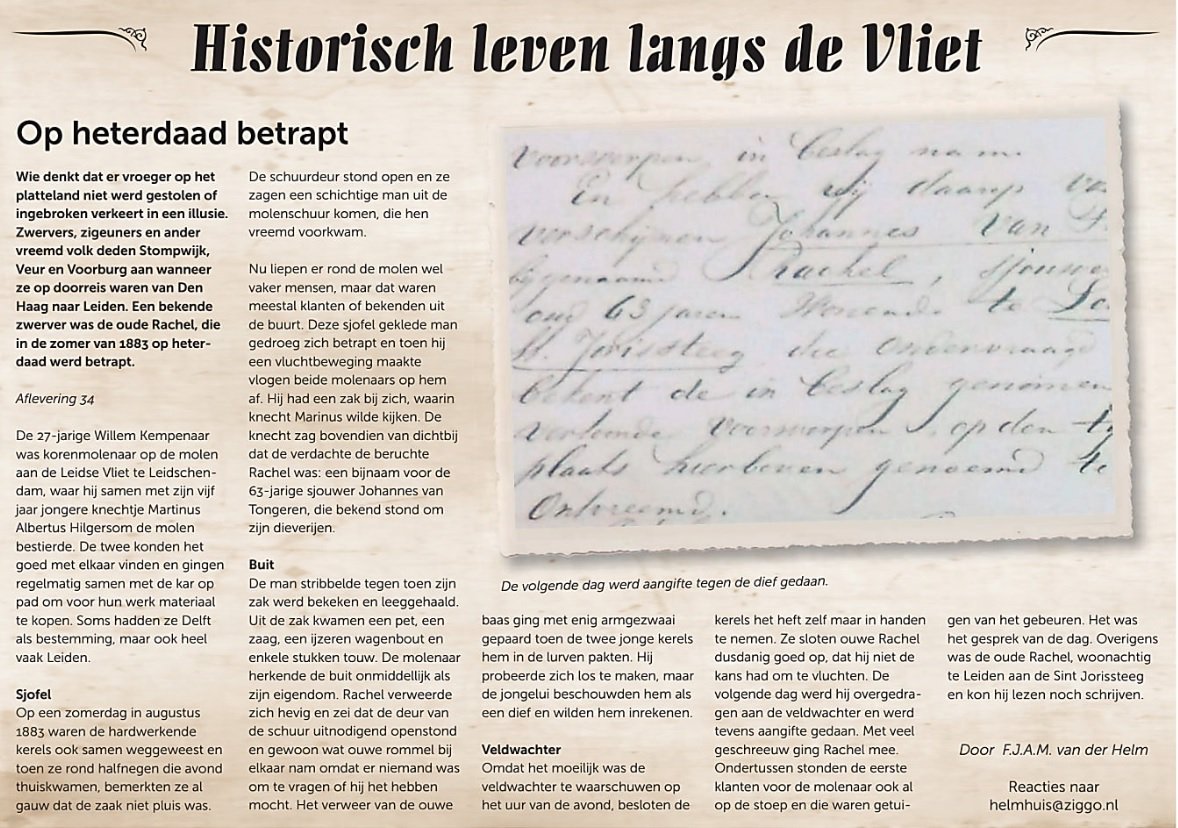 Historisch leven langs de Vliet
Op heterdaad betrapt
Wie denkt dat er vroeger op het
platteland niet werd gestolen of
ingebroken verkeert in een illusie.
Zwervers, zigeuners en ander
vreemd volk deden Stompwijk,
Veur en Voorburg aan wanneer
ze op doorreis waren van Den
Haag naar Leiden. Een bekende
zwerver was de oude Rachel, die
in de zomer van 1883 op heter-
daad werd betrapt.
Aflevering 34
De 27-jarige Willem Kempenaar
was korenmolenaar op de molen
aan de Leidse Vliet te Leidschen-
dam, waar hij samen met zijn vijf
jaar jongere knechtje Martinus
Albertus Hilgersom de molen
bestierde. De twee konden het
goed met elkaar vinden en gingen
regelmatig samen met de kar op
pad om voor hun werk materiaal
te kopen. Soms hadden ze Delft
als bestemming, maar ook heel
vaak Leiden.
Sjofel
Op een zomerdag in augustus
1883 waren de hardwerkende
kerels ook samen weggeweest en
toen ze rond halfnegen die avond
thuiskwamen, bemerkten ze al
gauw dat de zaak niet pluis was.
De schuurdeur stond open en ze
zagen een schichtige man uit de
molenschuur komen, die hen
vreemd voorkwam.
Nu liepen er rond de molen wel
vaker mensen, maar dat waren
meestal klanten of bekenden uit
de buurt. Deze sjofel geklede man
gedroeg zich betrapt en toen hij
een vluchtbeweging maakte
vlogen beide molenaars op hem
af. Hij had een zak bij zich, waarin
knecht Marinus wilde kijken. De
knecht zag bovendien van dichtbij
dat de verdachte de beruchte
Rachel was: een bijnaam voor de
63-jarige sjouwer Johannes van
Tongeren, die bekend stond om
zijn dieverijen.
Buit
De man stribbelde tegen toen zijn
zak werd bekeken en leeggehaald.
Uit de zak kwamen een pet, een
zaag, een ijzeren wagenbout en
enkele stukken touw. De molenaar
herkende de buit onmiddellijk als
zijn eigendom. Rachel verweerde
zich hevig en zei dat de deur van
de schuur uitnodigend openstond
en gewoon wat ouwe rommel bij
elkaar nam omdat er niemand was
om te vragen of hij het hebben
mocht. Het verweer van de ouwe
voorwerpen in beslag nam.
En hebben wij daarop
verschijnen Johannes van
bijgenaamd Rachel,
oud 63 jaren Wonende te
St. Jorissteeg die ondervraagd
bekent de in beslag genomen
vertoonde voorwerpen, op den
plaats hierboven genoemd te
Ontvreemd.
De volgende dag werd aangifte tegen de dief gedaan.
baas ging met enig armgezwaai
gepaard toen de twee jonge kerels
hem in de lurven pakten. Hij
probeerde zich los te maken, maar
de jongelui beschouwden hem als
een dief en wilden hem inrekenen.
Veldwachter
Omdat het moeilijk was de
veldwachter te waarschuwen op
het uur van de avond, besloten de
kerels het heft zelf maar in handen
te nemen. Ze sloten ouwe Rachel
dusdanig goed op, dat hij niet de
kans had om te vluchten. De
volgende dag werd hij overgedra-
gen aan de veldwachter en werd
tevens aangifte gedaan. Met veel
geschreeuw ging Rachel mee.
Ondertussen stonden de eerste
klanten voor de molenaar ook al
op de stoep en die waren getui-
gen van het gebeuren. Het was
het gesprek van de dag. Overigens
was de oude Rachel, woonachtig
te Leiden aan de Sint Jorissteeg
en kon hij lezen noch schrijven.
Door F.J.A.M. van der Helm
Reacties naar
helmhuis@ziggo.nl